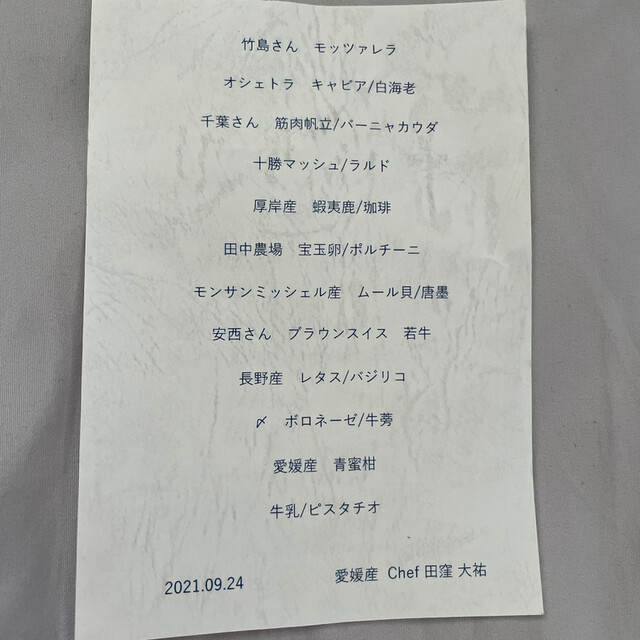 竹島さん　モッツァレラ
オシェトラ　キャビア/白海老
千葉さん　筋肉帆立/バーニャカウダ
十勝マッシュ/ラルド
厚岸産　蝦夷鹿/珈琲
田中農場　宝玉卵/ポルチーニ
モンサンミッシェル産　ムール貝/唐墨
安西さん　ブラウンスイス　若牛
長野産　レタス/バジリコ
〆　ボロネーゼ/牛蒡
愛媛産　青蜜柑
牛乳/ピスタチオ
2021.09.24
愛媛産 Chef 田窪 大祐